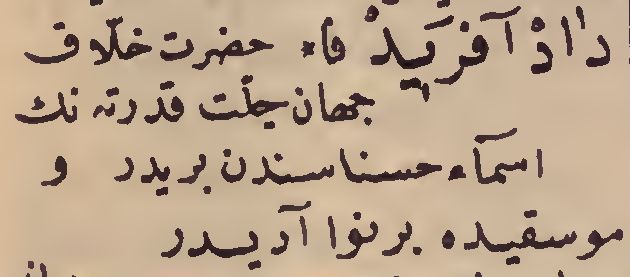 دادْ آفَرِيدْ فاء حضرت خلّاق
جهان جلّت قدرته نك
اسمآء حسناسندن بریدر و
موسقیده بر نوا آدیدر